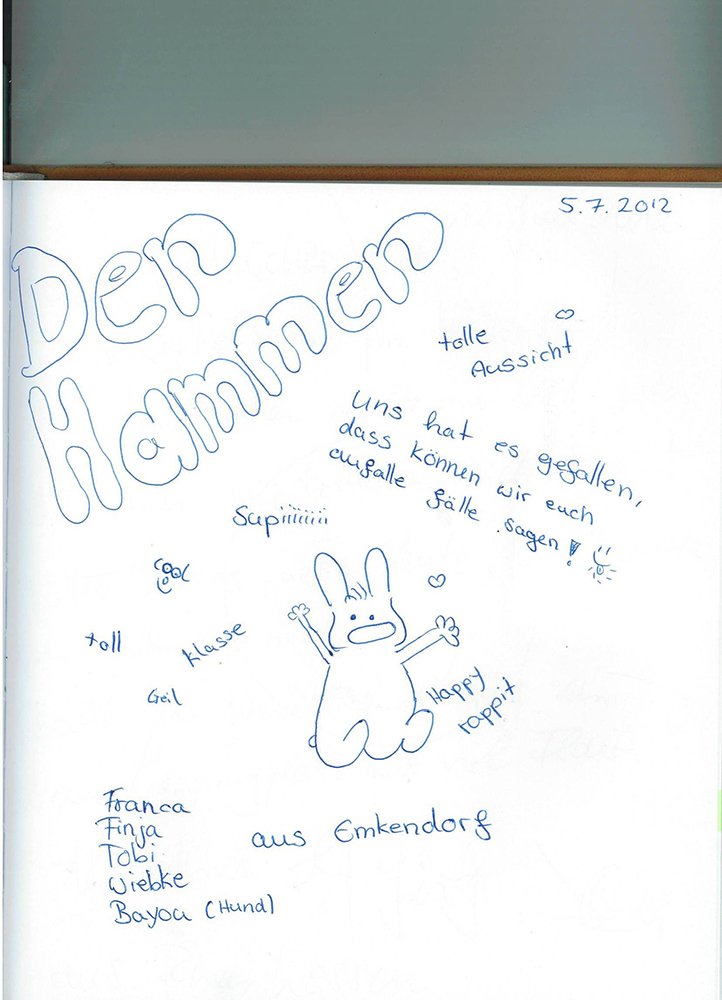 5.7.2012
Der
Hammer
tolle
Aussicht
Uns hat es gefallen,
dass können wir euch
aufalle fälle sagen!
Supiiiiiiii
toll
klasse
Geil
Happy
rappit
Franca
Finja
Tobi
Wiebke
Bayou (Hund)
aus Emkendorf